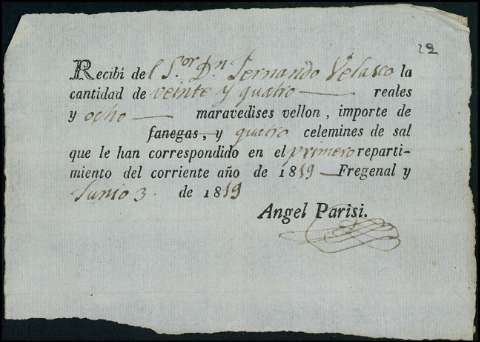 12
Recibí del S.or D.n Fernando Velasco la
cantidad de veinte y quatro reales
y ocho maravedises vellon, importe de
fanegas, y quatro celemines de sal
que le han correspondido en el primero reparti-
miento del corriente año de 1819 Fregenal y
Junio 3 de 1819
Angel Parisi.